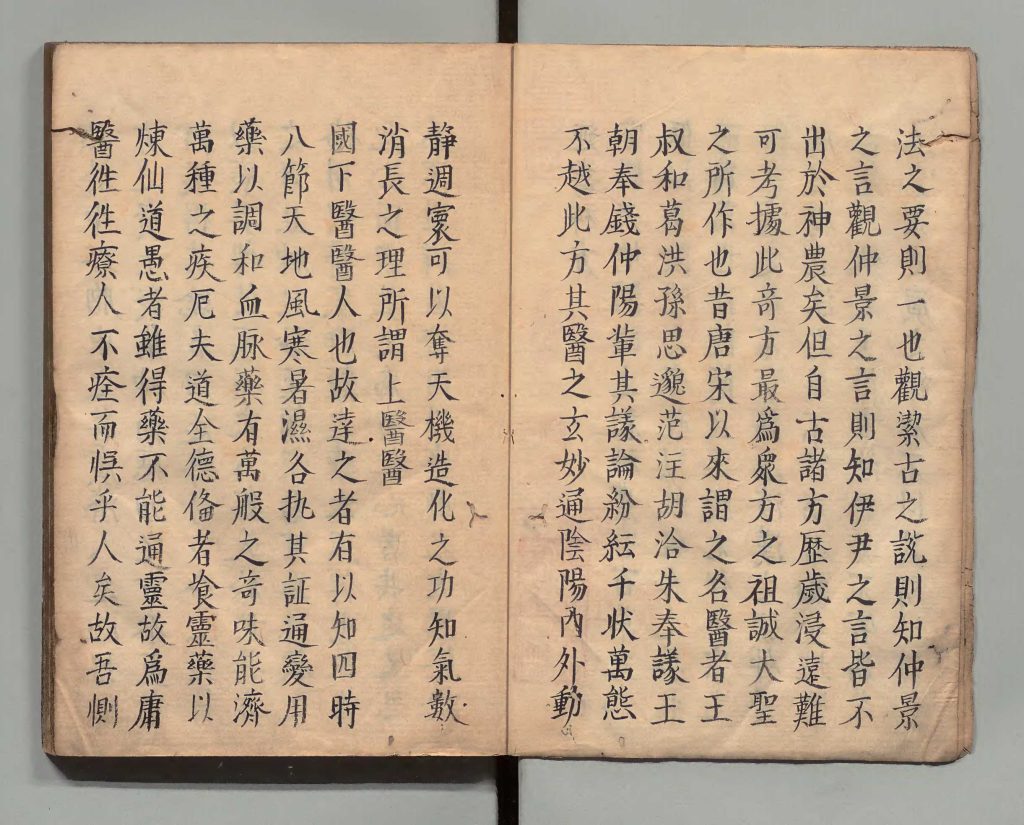 法之要則一也觀潔古之說則知仲景
之言觀仲景之言則知伊尹之言皆不
出於神農矣但自古諸方歷歲浸遠難
可考據此奇方最爲衆方之祖誠大聖
之所作也昔唐宋以來謂之名醫者王
叔和葛洪孫思邈范汪胡洽朱奉議王
朝奉錢仲陽輩其議論紛紜千状萬態
不越此方其醫之玄妙通陰陽內外動
静週寰可以奪天機造化之功知氣數
消長之理所謂上醫醫
國下醫醫人也故達之者有以知四時
八節天地風寒暑濕各執其証通變用
藥以調和血脉藥有萬般之奇味能濟
萬種之疾厄夫道全德俻者飡靈藥以
煉仙道愚者雖得藥不能通靈故爲庸
醫徃徃療人不痊而悞乎人矣故吾惻